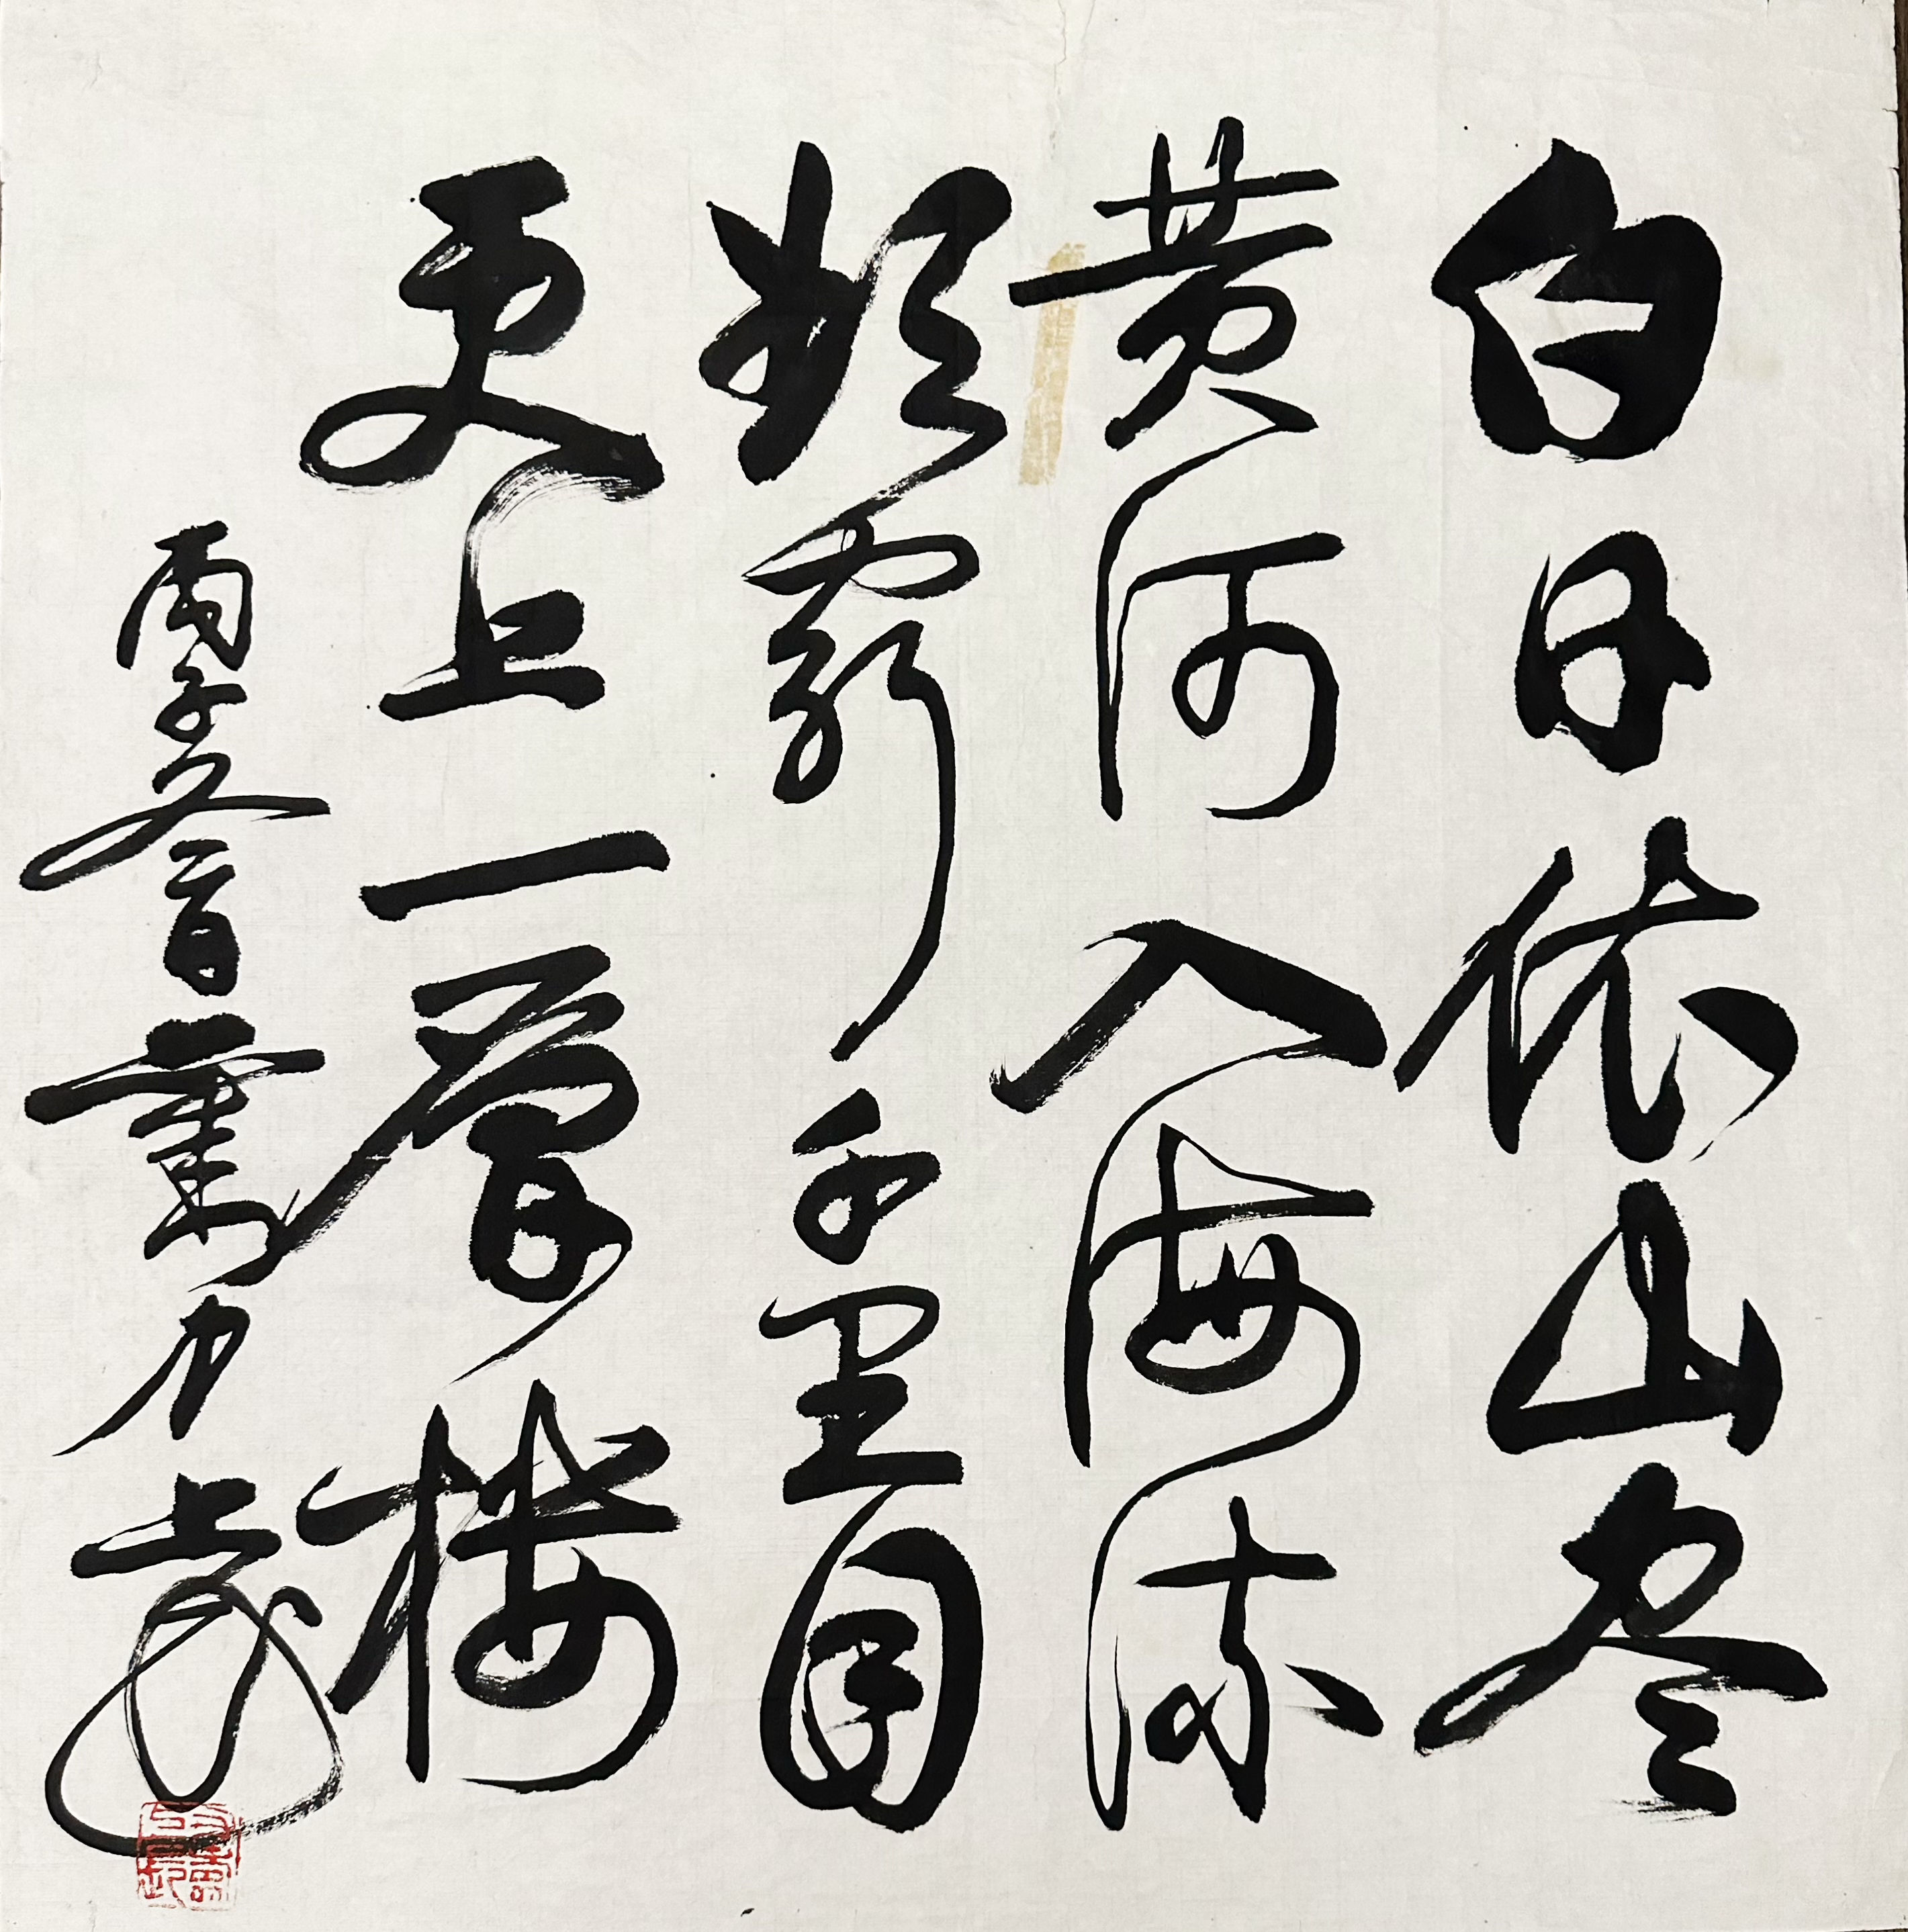 白日依山尽
黄河入海流
欲穷千里目
更上一层楼
丙子冬月董力